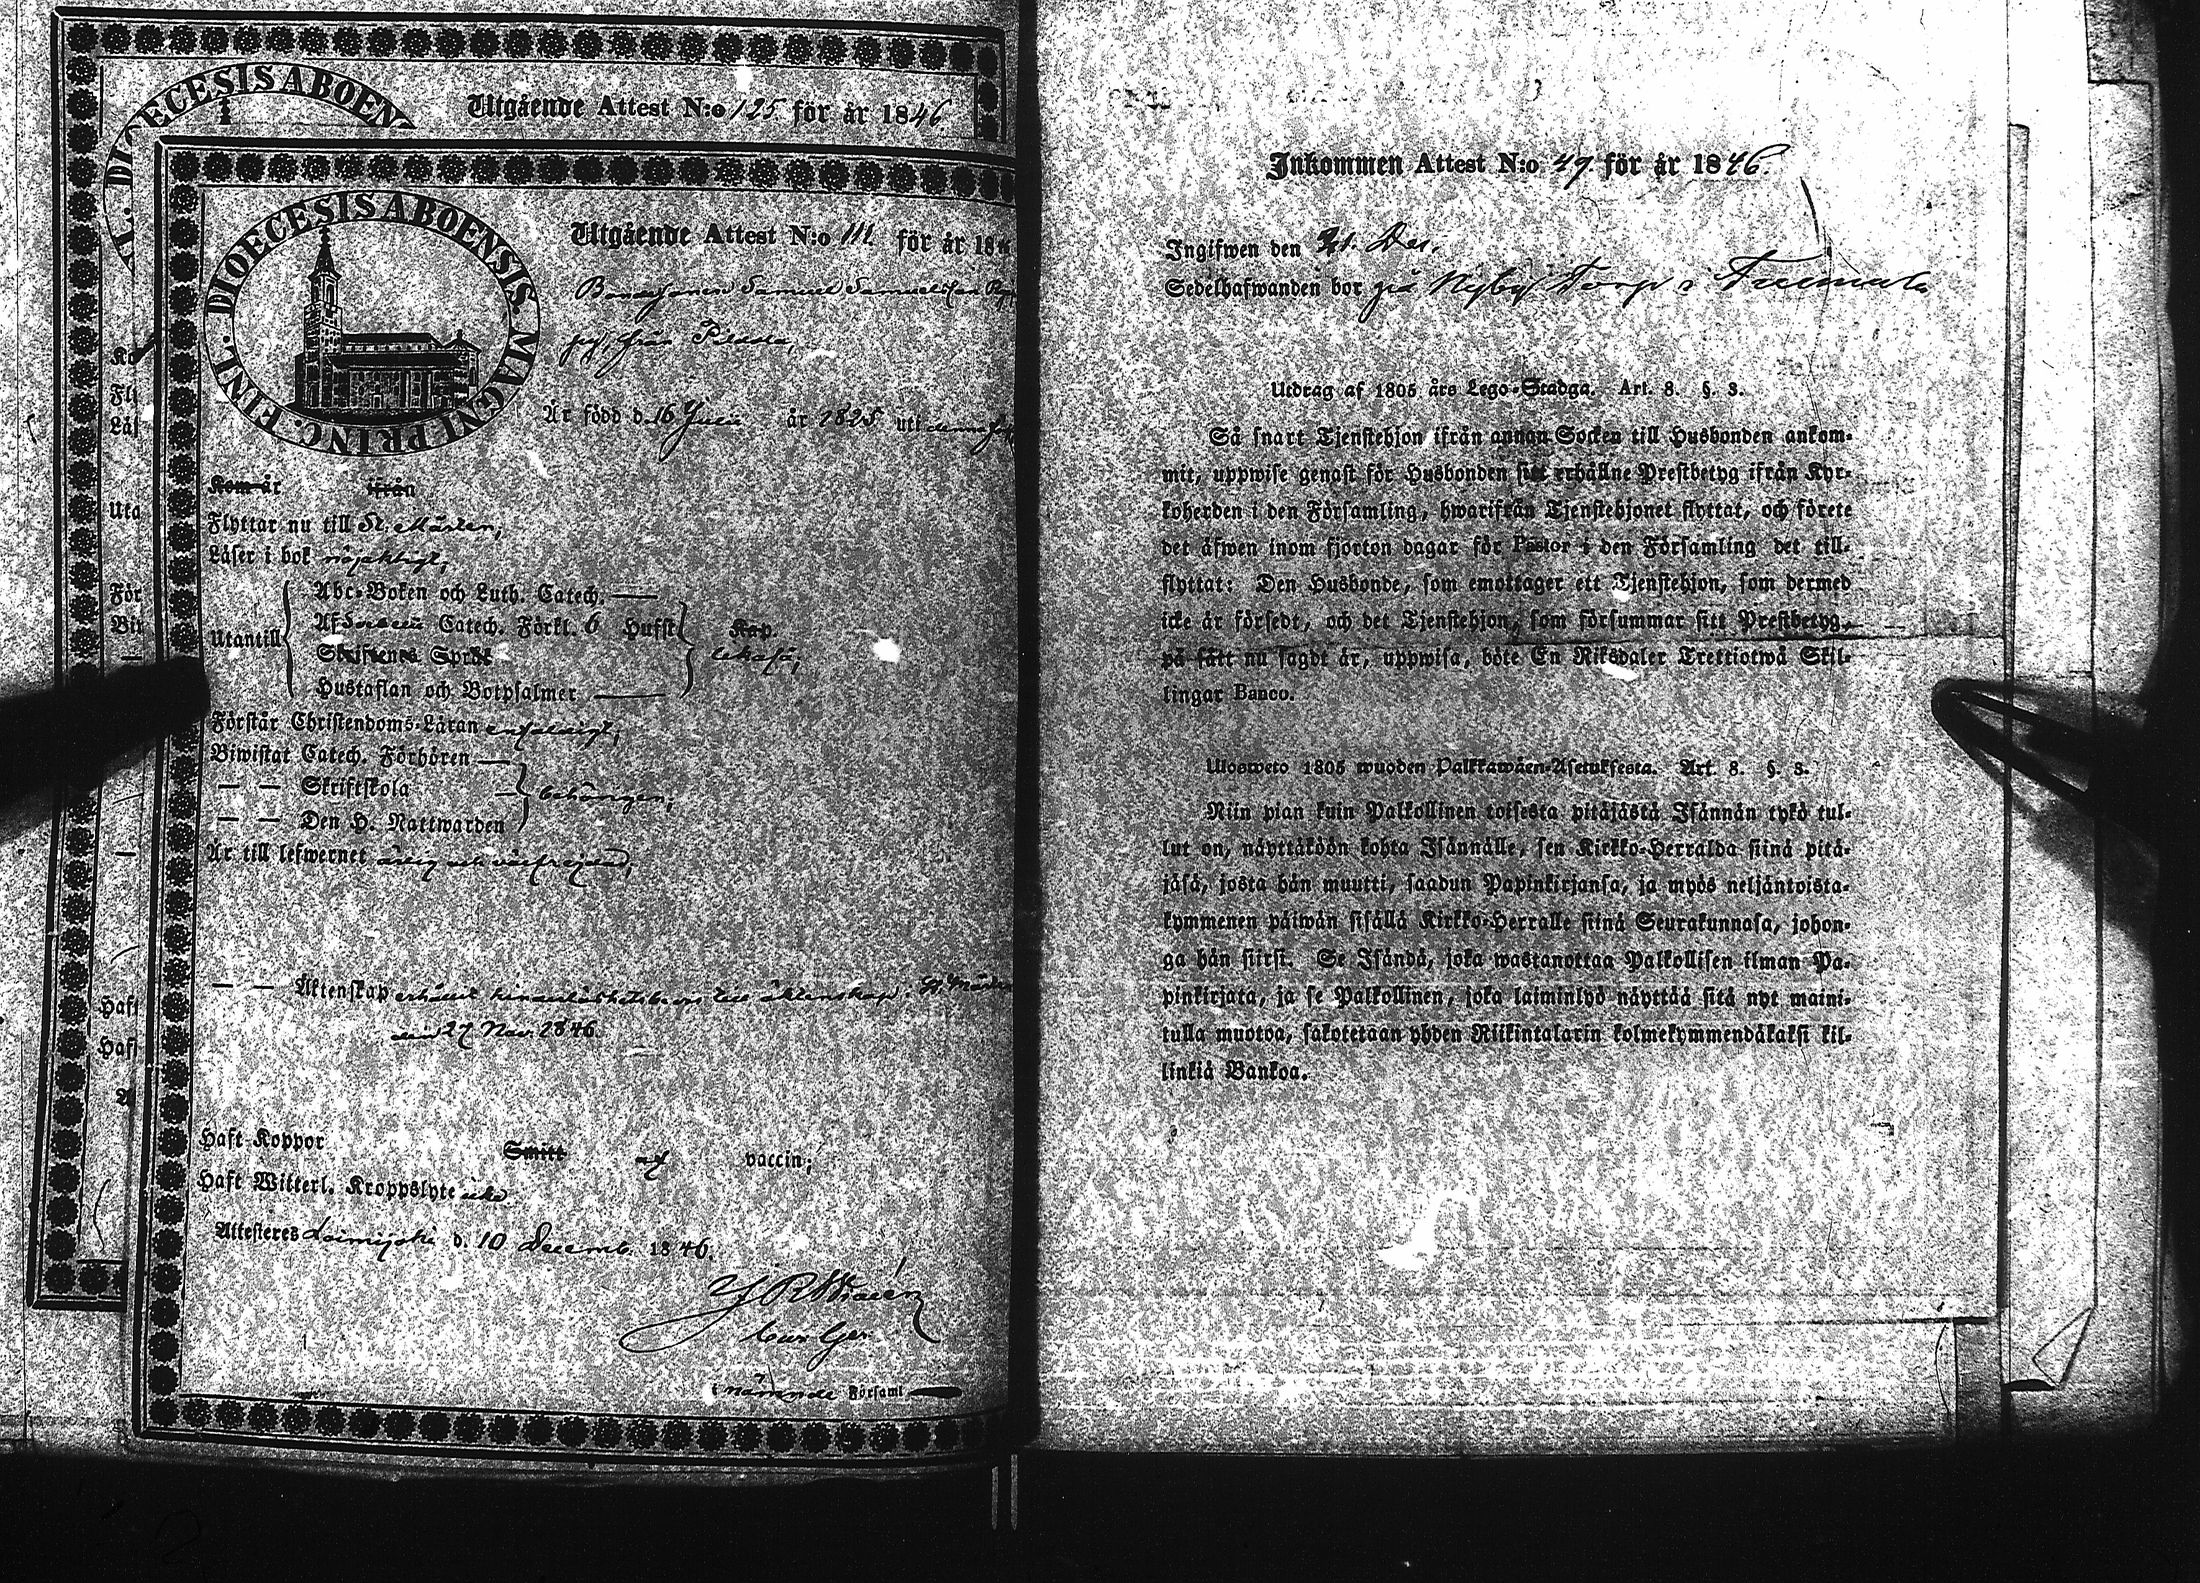 DIOECESIS ABOEN
Utgående Attest N:o 125 för år 1846
DIOECESIS ABOENSIS. MAGNI PRINC. FINL.
Utgående Attest N:o 111. för år 18
Bondesonen Samuel Samuelsson
från
Är född d. 16 Julii år 1825 uti denna
Kom år ifrån
Flyttar nu till St. Mårten,
Läser i bok nöjaktigt,
Utantill
Abc-Boken och Luth. Catech. —
Af Sorbeni Catech. Förkl. 6 Hufst Kap.
Skriftenes Språk
likaså,
Hustaflan och Botpsalmer —
Förstår Christendoms-Läran enfaldigt,
Biwistat Catech. Förhören —
— — Skriftskola — behörigen;
— — Den H. Nattwarden
Är till lefwernet ärlig och välfrejdad;
— — Äktenskap erhållit hinderlöshetsbevis till äktenskap i St. Mårten
den 27 Nov. 1846.
Haft Koppor Smitt af vaccin;
Haft Witterl. Kroppslyte icke
Attesteras Loimijoki d. 10 Decemb. 1846.
i nämnde Församl
Ka
Fly
Läs
Uta
För
Biw
Haft
Haft
A
Inkommen Attest N:o 49. för år 1846.
Ingifwen den 21. Dec.
Sedelhafwanden bor på Nyby Torp i
Utdrag af 1805 års Lego-Stadga. Art. 8. §. 3.
Så snart Tjenstehjon ifrån annan Socken till Husbonden ankom-
mit, uppwise genast för Husbonden sitt erhållne Prestbetyg ifrån Kyr-
koherden i den Församling, hwarifrån Tjenstehjonet flyttat, och förete
det äfwen inom fjorton dagar för Pastor i den Församling det till-
flyttat: Den Husbonde, som emottager ett Tjenstehjon, som dermed
icke är försedt, och det Tjenstehjon, som försummar sitt Prestbetyg,
på sätt nu sagdt är, uppwisa, böte En Riksdaler Trettiotwå Skil-
lingar Banco.
Ulosweto 1805 wuoden Palkkawäen-Asetuksesta. Art. 8. §. 3.
Niin pian kuin Palkollinen toisesta pitäjästä Isännän tykö tul-
lut on, näyttäköön kohta Isännälle, sen Kirkko-Herralda siinä pitä-
jäsä, josta hän muutti, saadun Papinkirjansa, ja myös neljäntoista-
kymmenen päiwän sisällä Kirkko-Herralle siinä Seurakunnasa, johon-
ga hän siirsi. Se Isändä, joka wastanottaa Palkollisen ilman Pa-
pinkirjata, ja se Palkollinen, joka laiminlyö näyttää sitä nyt maini-
tulla muotoa, sakotetaan yhden Riikintalarin kolmekymmendäkaksi kil-
linkiä Bankoa.